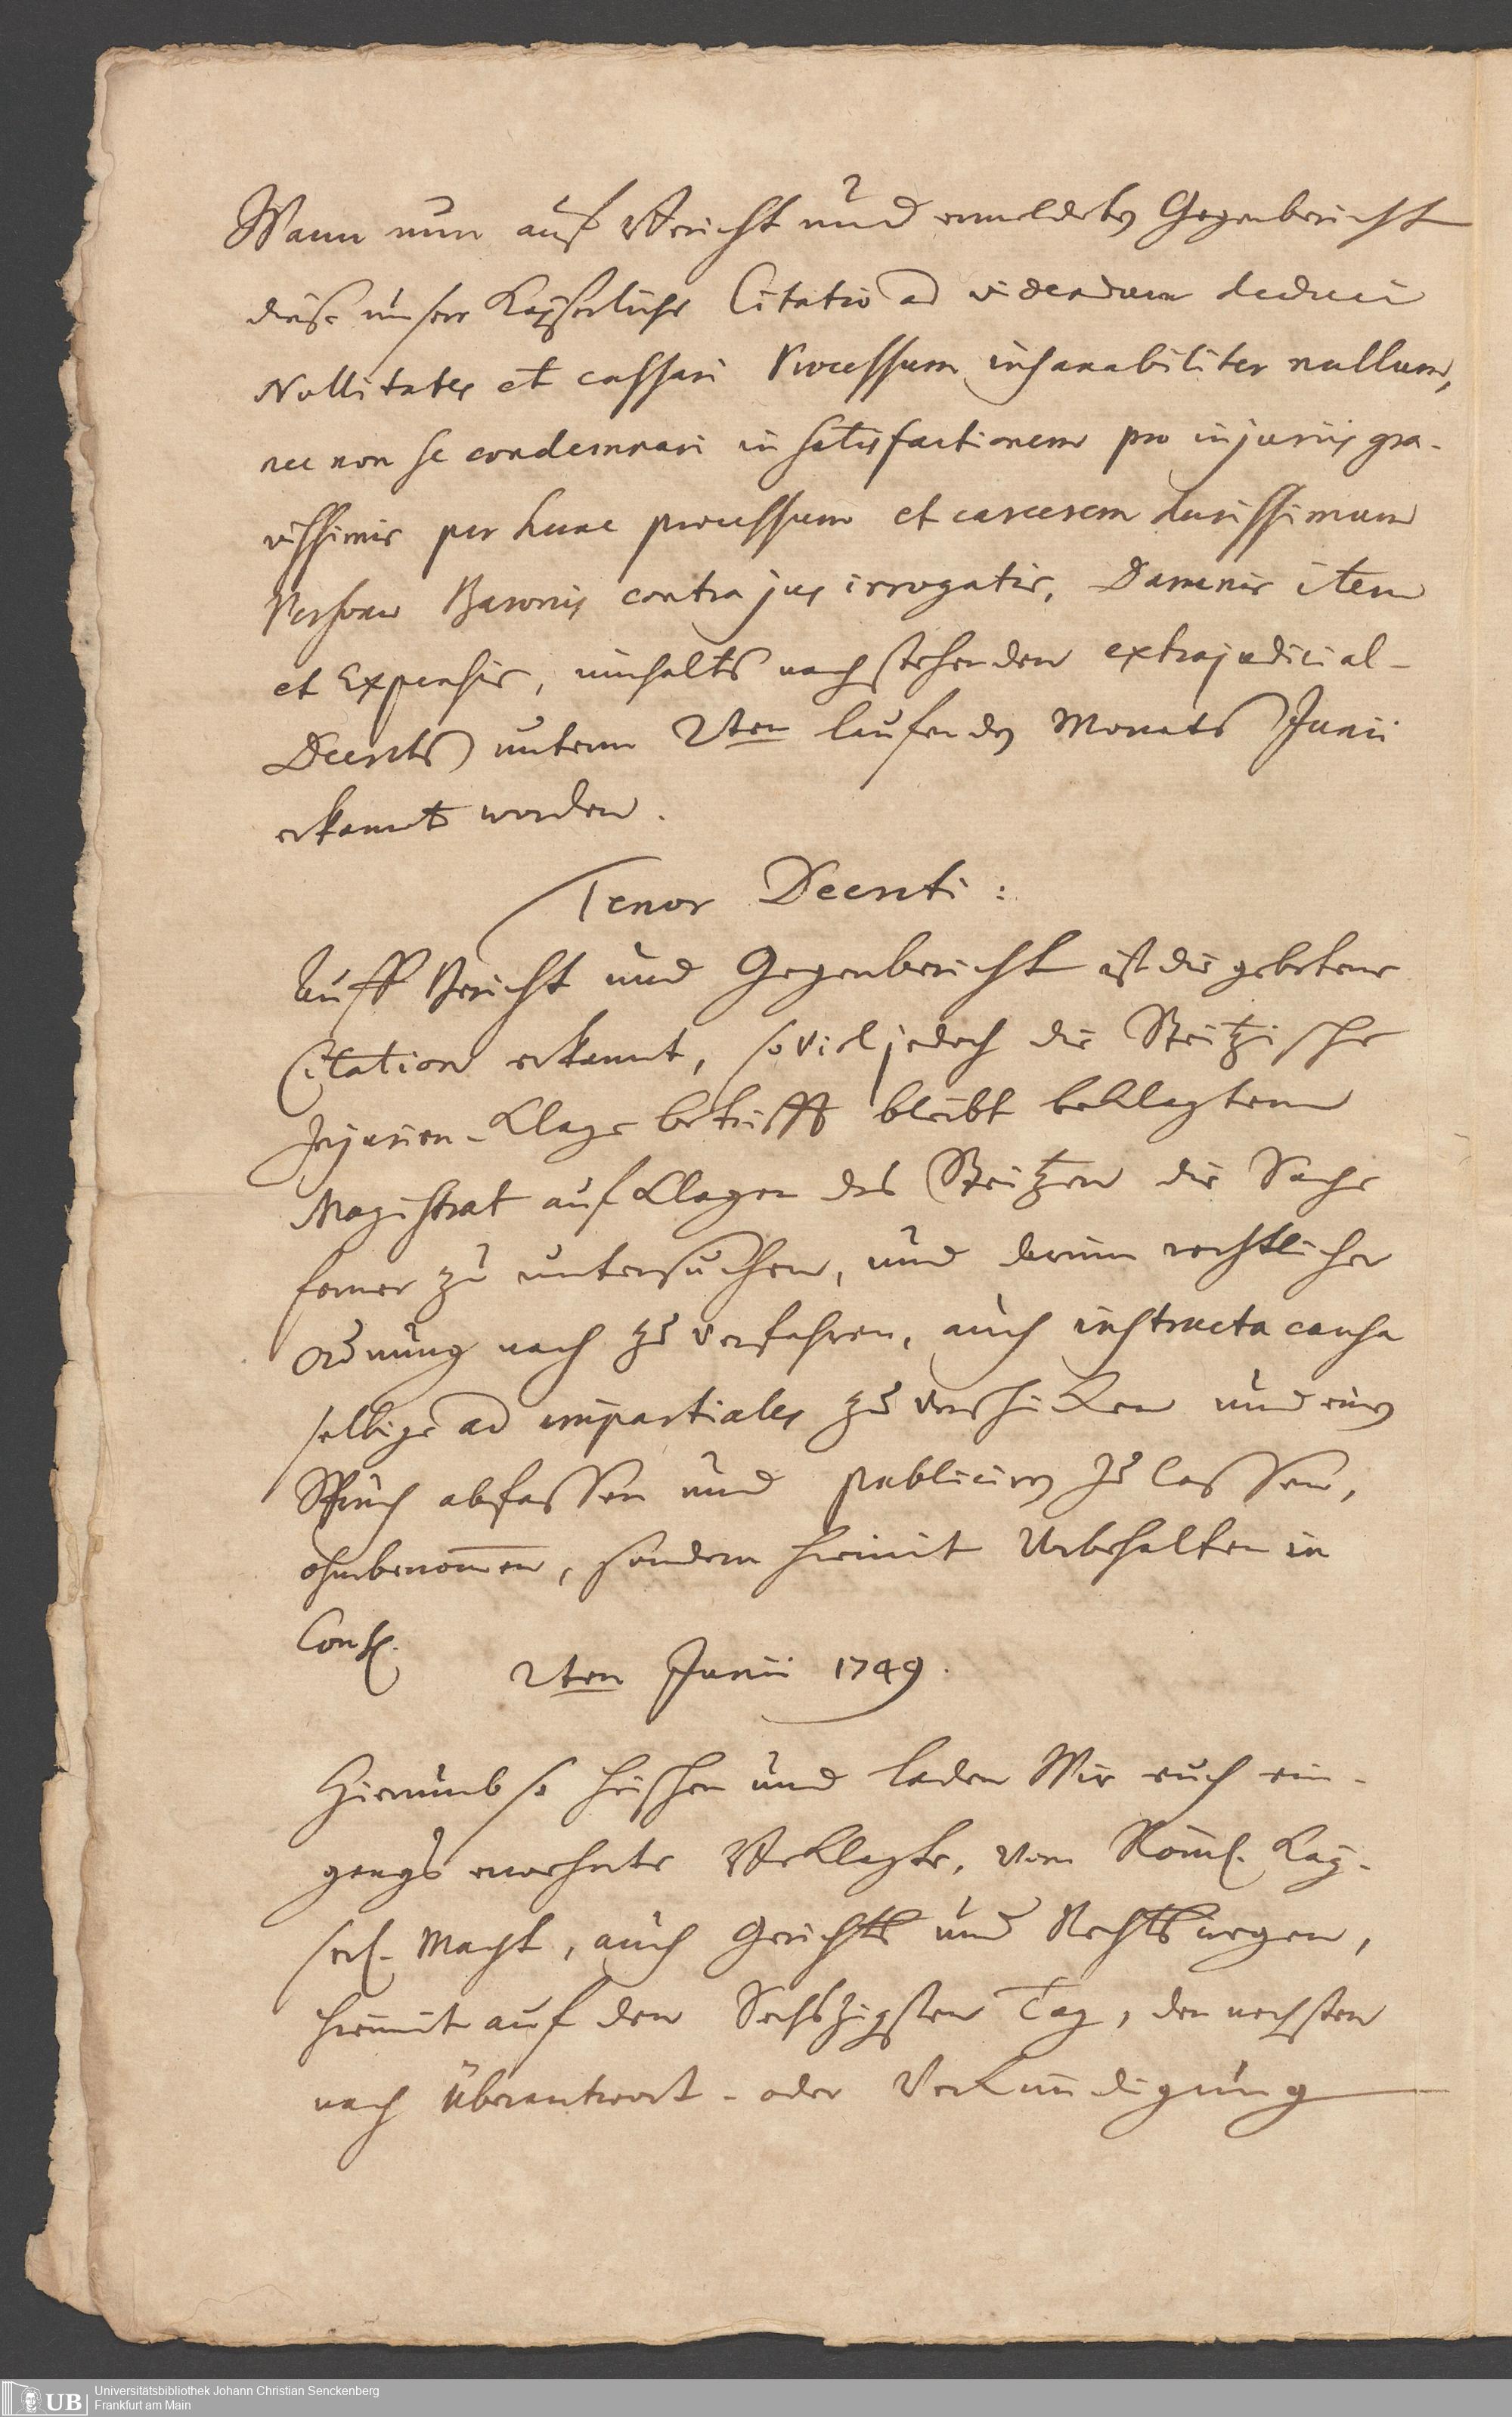 Wann nun auf Bericht und vermeldeten Gegenbericht
diese unsere Kayserliche Citatio ad videndum deduci
Nullitates et cassari Processum insanabiliter nullum,
nec non se condemnari in satisfactionem pro injuriis gra-
vissimis per hunc processum et carcerem durissimum
Personae Baronis contra jus irrogatis, Damnis item
et Expensis, innhalts nachstehenden extrajudicial-
Decrets unterm 2ten laufenden Monats Junii
erkannt worden.
Tenor Decreti:
Auff Bericht und Gegenbericht ist die gebetene
Citation erkannt, so viel jedoch die Steitzische
Injurien-Klage betrifft bleibt beklagtem
Magistrat auf Klagen des Steitzen die Sache
ferner zu untersuchen, und darinn rechtlicher
Ordnung nach zu verfahren, auch instructa causa
selbige ad impartiales zu verschicken und einen
Spruch abfassen und publiciren zu lassen,
ohnbenommen, sondern hiemit Vorbehalten in
Cons.
2ten Junii 1749.
Hierumb so heischen und laden Wir euch ein-
gangs erwehnte Beklagte, von Röml. Kay-
serl. Macht, auch Gerichts und Rechtswegen,
hiemit auf den Sechszigsten Tag, den nechsten
nach Überantwort- oder Verkündigung